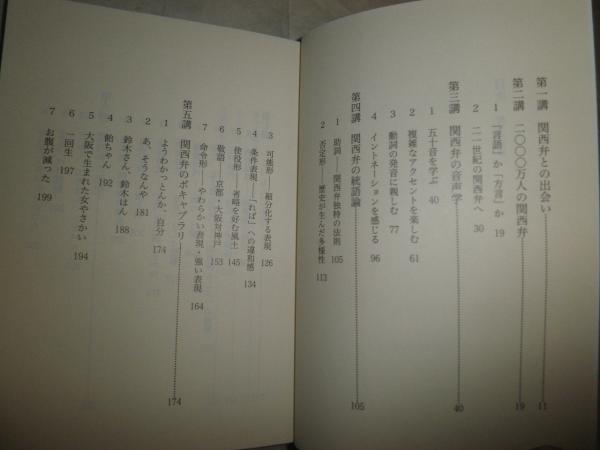 第一講　関西弁との出会い………11
第二講　二〇〇〇万人の関西弁………19
1　「言語」か「方言」か　19
2　二一世紀の関西弁へ　30
第三講　関西弁の音声学………40
1　五十音を学ぶ　40
2　複雑なアクセントを楽しむ　61
3　動詞の発音に親しむ　77
4　イントネーションを感じる　96
第四講　関西弁の統語論………105
1　助詞――関西弁独特の法則　105
2　否定形――歴史が生んだ多様性　113
3　可能形――細分化する表現　126
4　条件表現――「れば」への違和感　134
5　使役形――省略を好む風土　145
6　敬語――京都・大阪対神戸　153
7　命令形――やわらかい表現・強い表現　164
第五講　関西弁のボキャブラリー………174
1　ようわかっとんか、自分　174
2　あ、そうなんや　181
3　鈴木さん、鈴木はん　188
4　飴ちゃん　192
5　大阪で生まれた女やさかい　194
6　一回生　197
7　お腹が減った　199